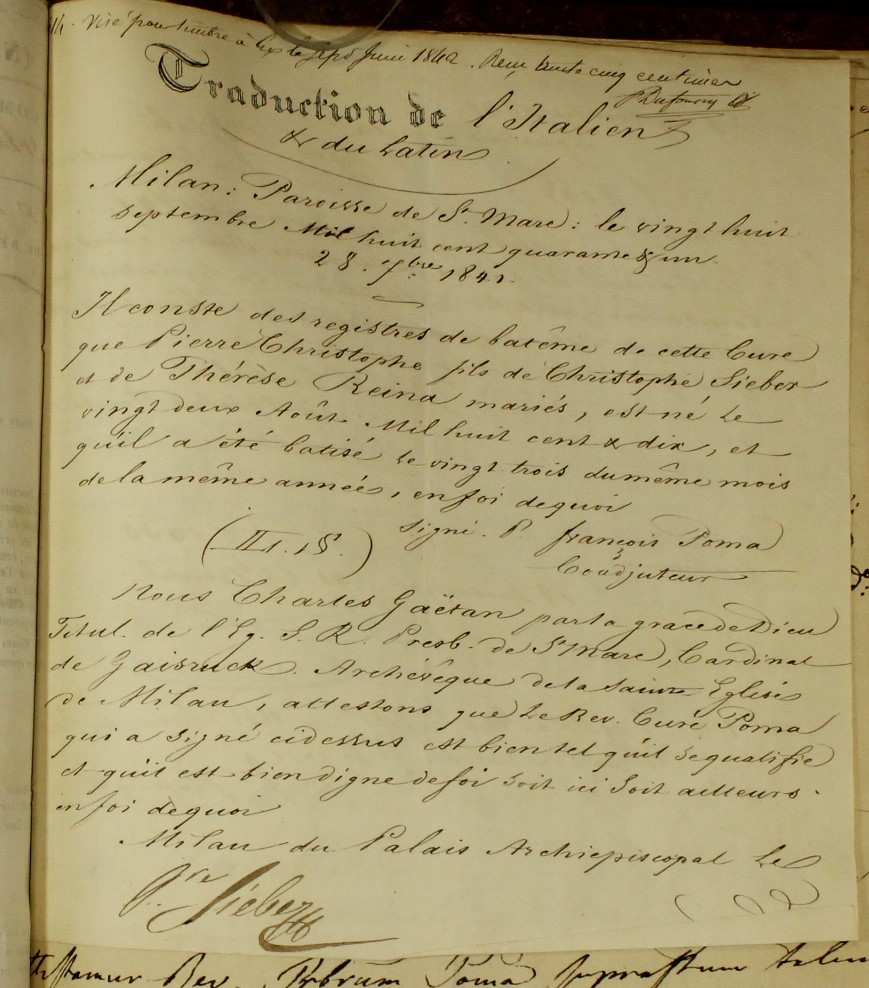 Visé pour timbre à Lyx le sept Juin 1842. Reçu trente cinq centimes
Traduction de l'Italien
& du Latin
Milan: Paroisse de St Marc: le vingt huit
septembre Mil huit cent quarante & un
28. 7bre 1841.
Il conste des registres de batême de cette Cure
que Pierre Christophe fils de Christophe Sieber
et de Thérèse Reina mariés, est né le
vingt deux Août Mil huit cent & dix, et
qu'il a été batisé le vingt trois du même mois
de la même année, en foi de quoi
signé. P françois Poma
(L. S.)
Coadjuteur
Nous Charles Gaëtan par la grace de Dieu
Titul. de l'Eg. S. R. Presb. de St Marc, Cardinal
de Gaisruck. Archévêque de la Sainte Eglise
de Milan, attestons que le Rev. Curé Poma
qui a signé cidessus est bien tel qu'il se qualifie
et qu'il est bien digne de foi soit ici soit ailleurs.
en foi de quoi
Milan du Palais Archiepiscopal le
Sieber
Rev. Poma